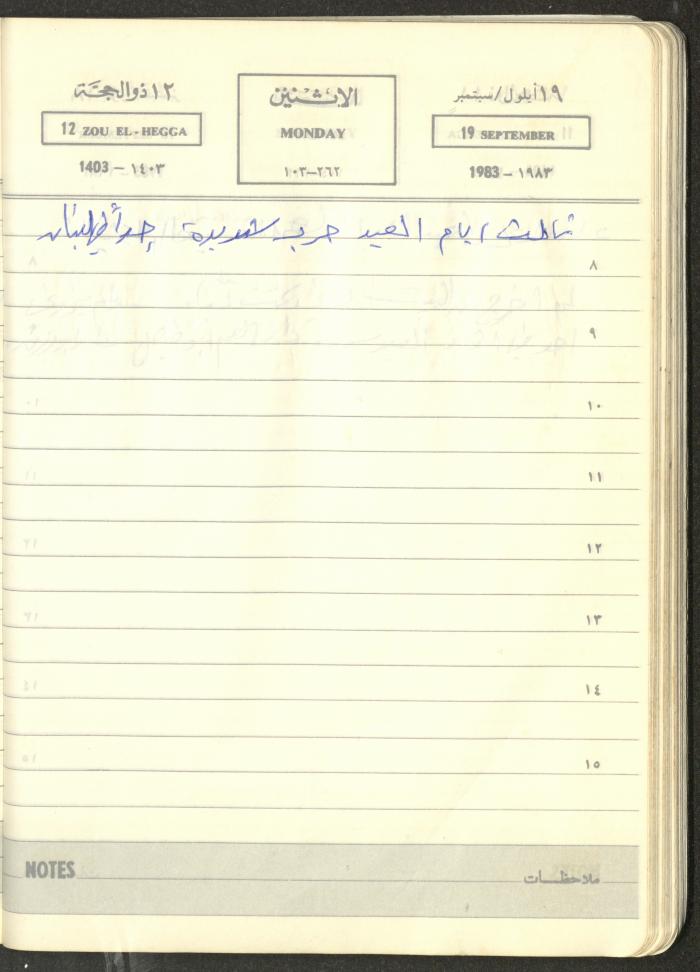 ١٢ ذوالحجَّة
الاثنين
١٩ أيلول/سبتمبر
12 ZOU EL-HEGGA
MONDAY
19 SEPTEMBER
1403 - ١٤٠٣
١٠٣-٢٦٢
1983 - ١٩٨٣
ثالث ايام العيد حرب شديدة جداً في لبنان
٨
٩
١٠
١١
١٢
١٣
١٤
١٥
NOTES
ملاحظات